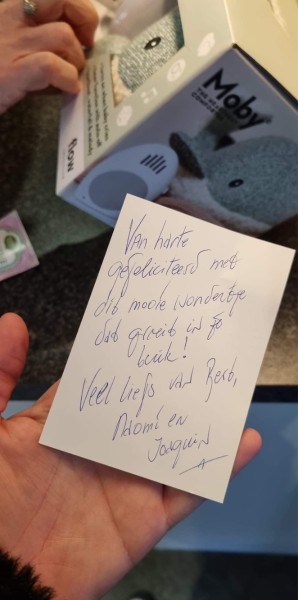 Moby
flow
Van harte
gefeliciteerd met
dit mooie wondertje
dat groeit in je
buik!
Veel liefs van Bert,
Naomi en
Joaquin